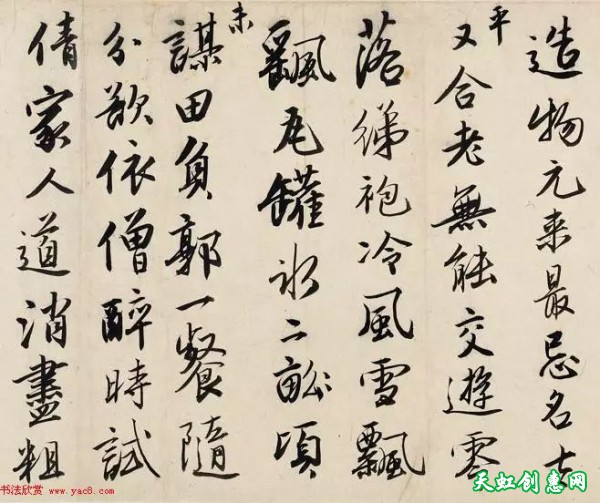 造物元来最忌名生
平又合老無能交遊零
落綈袍冷風雪飄
颻瓦罐冰二畝頃
未謀田負郭一餐隨
分欲依僧醉時試
倩家人道消盡粗
书法欣赏 www.yac8.com
天虹创惠网